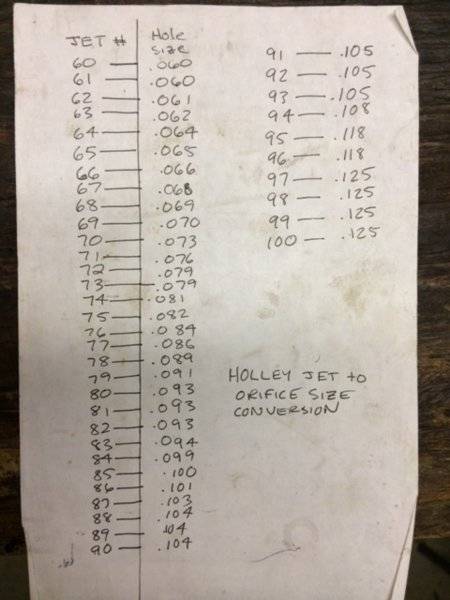 JET # Hole Size
60 — .060
61 — .060
62 — .061
63 — .062
64 — .064
65 — .065
66 — .066
67 — .068
68 — .069
69 — .070
70 — .073
71 — .076
72 — .079
73 — .079
74 — .081
75 — .082
76 — .084
77 — .086
78 — .089
79 — .091
80 — .093
81 — .093
82 — .093
83 — .094
84 — .099
85 — .100
86 — .101
87 — .103
88 — .104
89 — .104
90 — .104
91 — .105
92 — .105
93 — .105
94 — .108
95 — .118
96 — .118
97 — .125
98 — .125
99 — .125
100 — .125
HOLLEY JET to
ORIFICE SIZE
CONVERSION